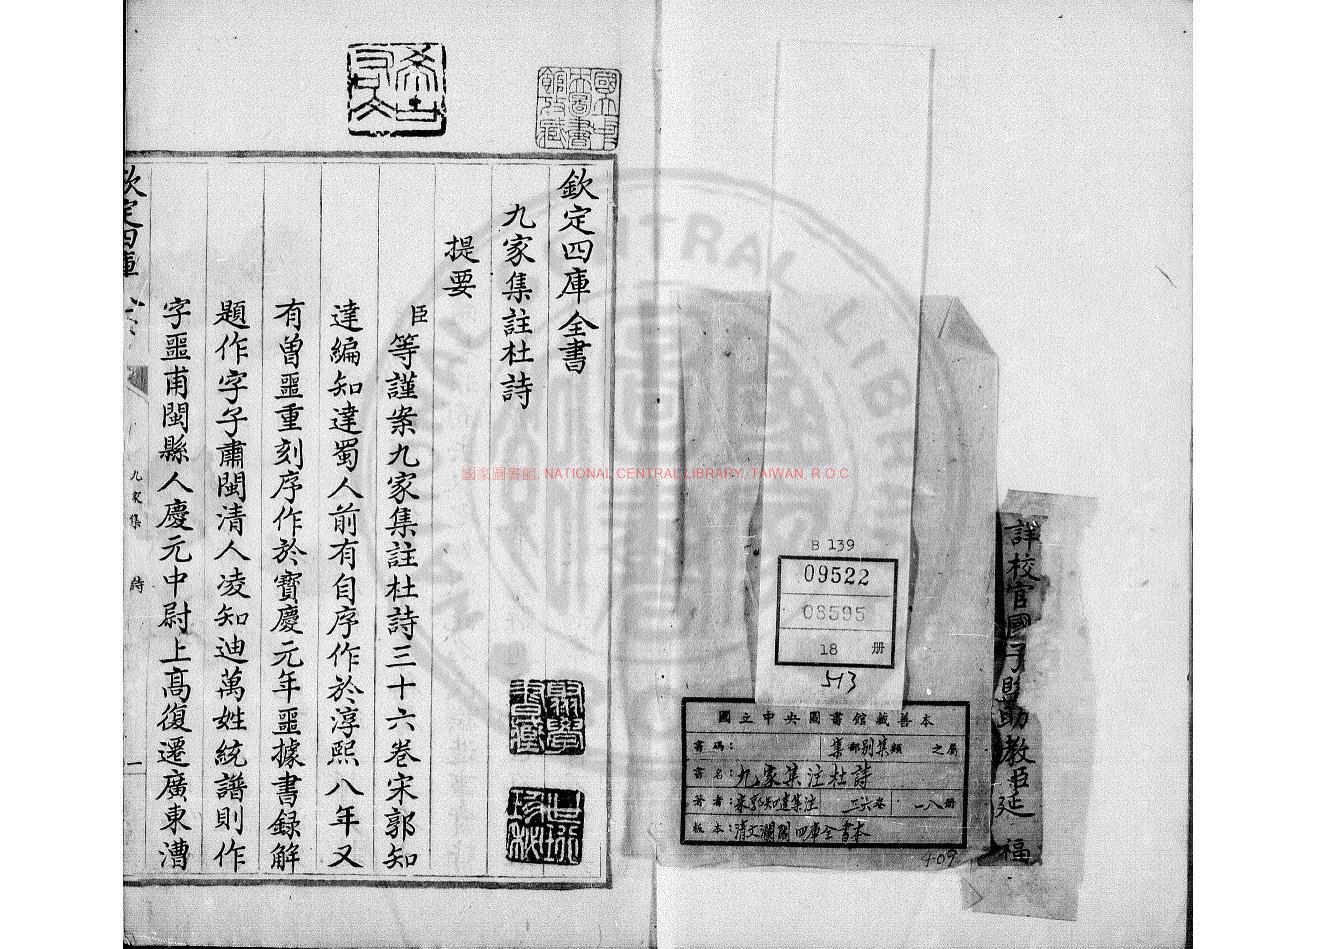 詳校官國子監助教臣延福
B 139
09522
08595
18 册
513
國立中央圖書館藏善本
書碼： 集部別集類 之屬
書名：九家集注杜詩
著者：宋郭知達集注 三六卷 一八册
板本：清文瀾閣四庫全書本
409
國家圖書館, NATIONAL CENTRAL LIBRARY, TAIWAN, R.O.C
欽定四庫全書
九家集註杜詩
提要
臣等謹案九家集註杜詩三十六卷宋郭知
達編知達蜀人前有自序作於淳熙八年又
有曾噩重刻序作於寶慶元年噩據書録解
題作字子肅閩清人凌知迪萬姓統譜則作
字噩甫閩縣人慶元中尉上高復遷廣東漕
欽定四庫
九家集 詩
一